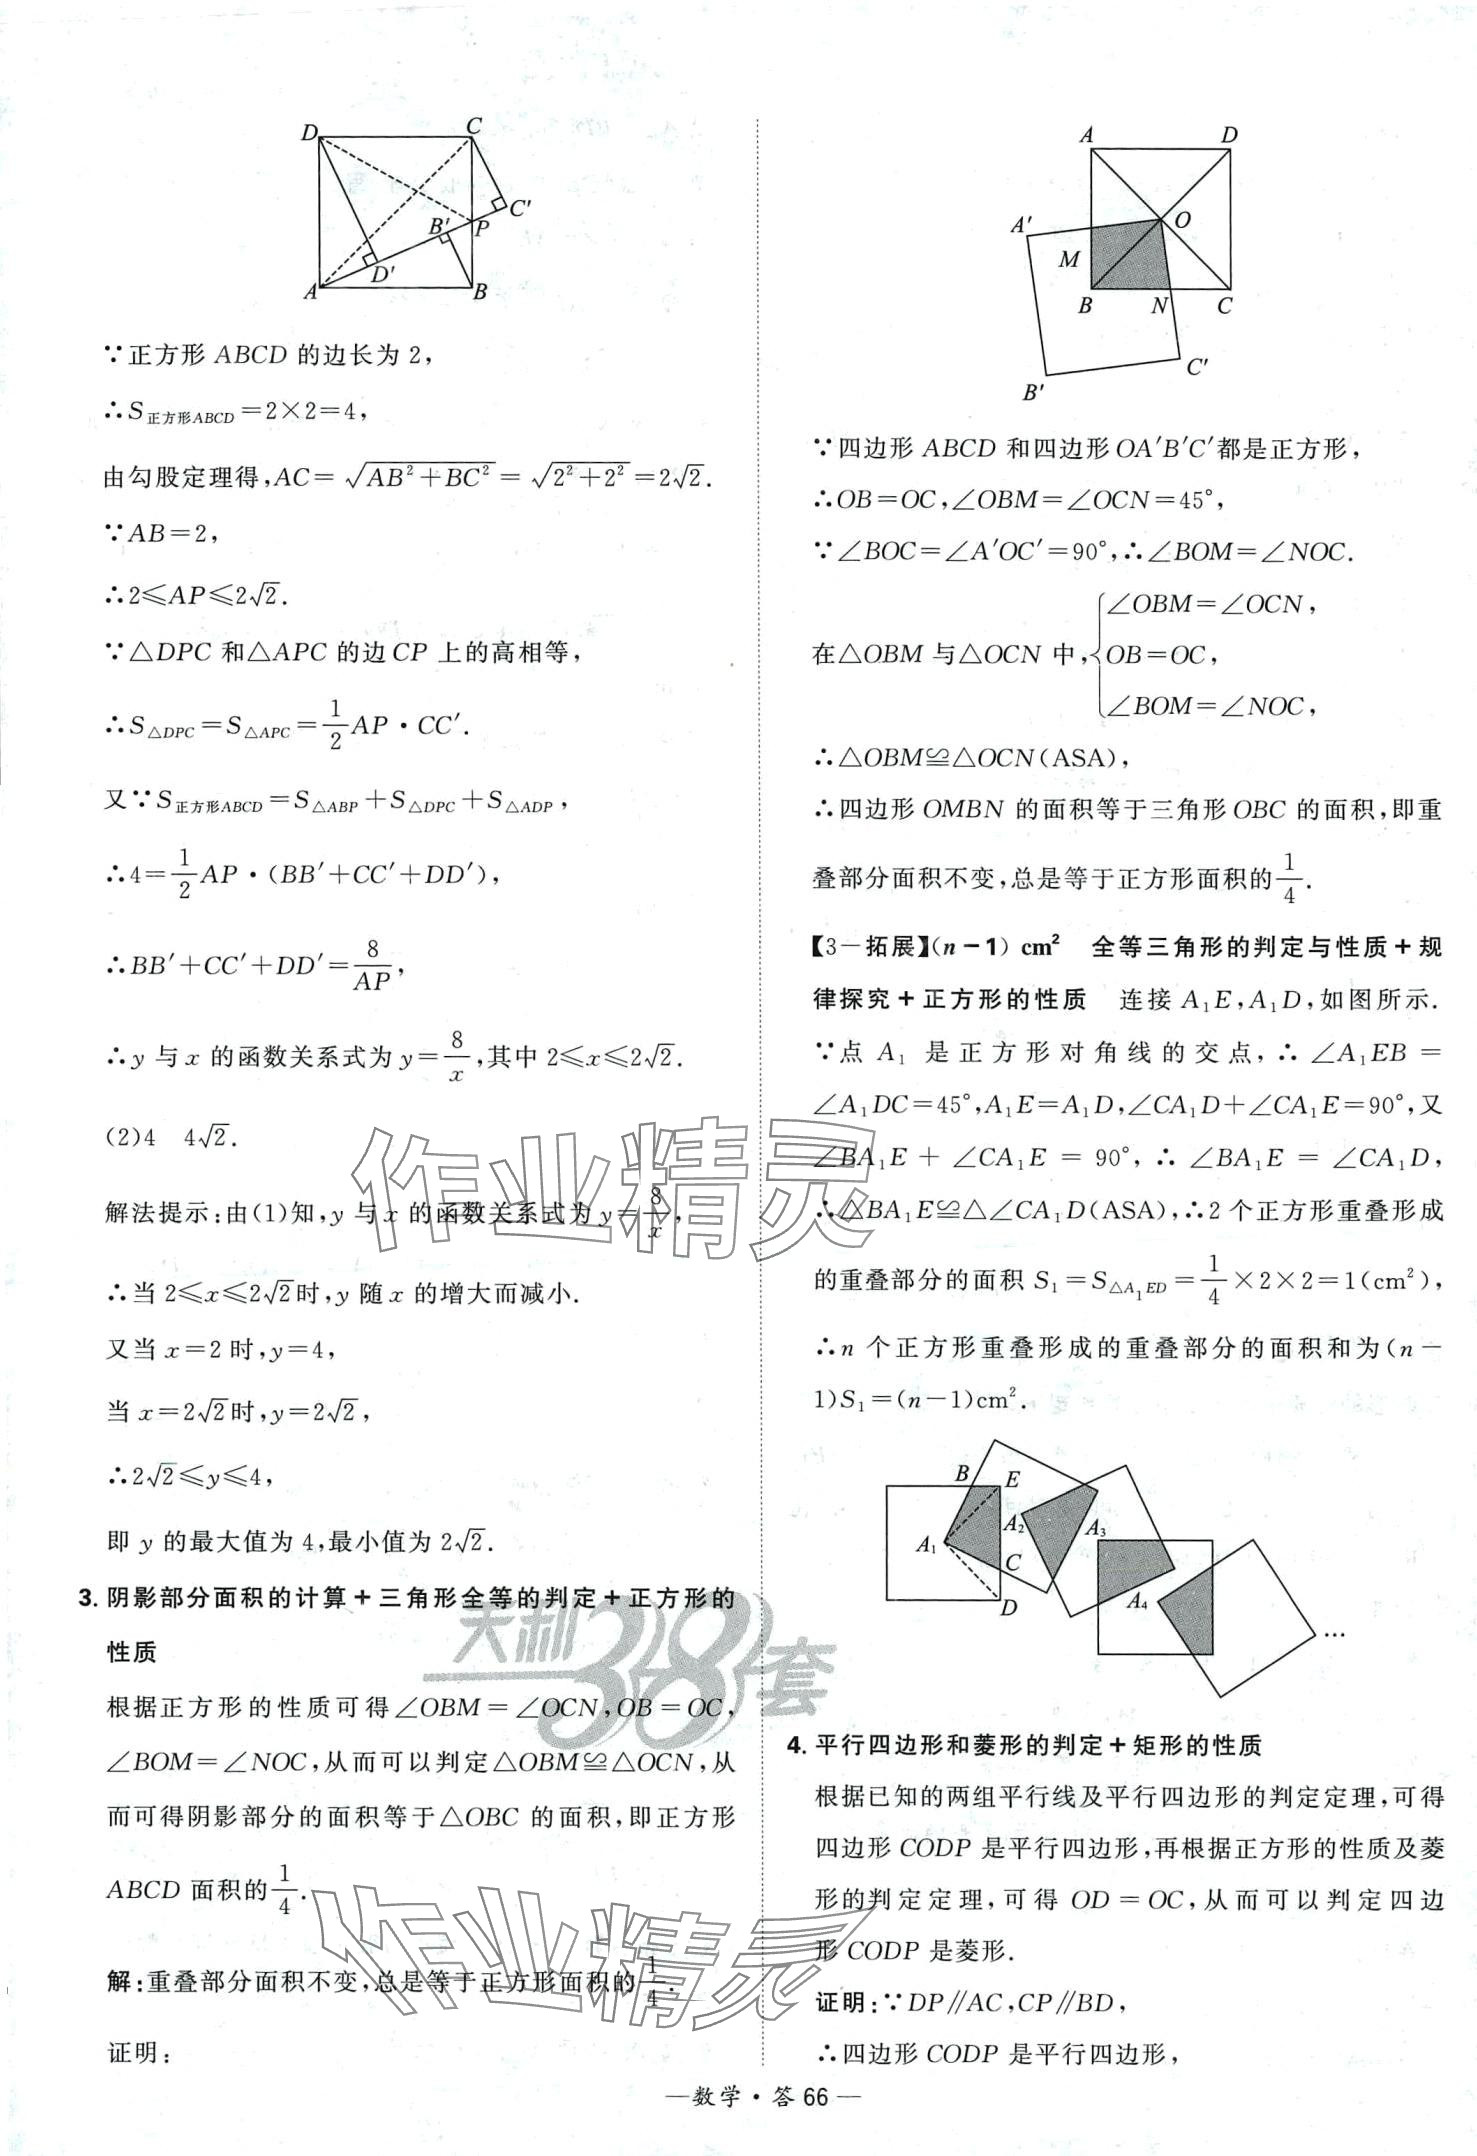 D
C
C'
B'
P
D'
A
B
∵正方形 ABCD 的边长为 2,
∴S正方形ABCD=2×2=4,
由勾股定理得,AC=√(AB²+BC²)=√(2²+2²)=2√2.
∵AB=2,
∴2≤AP≤2√2.
∵△DPC 和△APC 的边 CP 上的高相等,
∴S△DPC=S△APC=1/2 AP·CC′.
又∵S正方形ABCD=S△ABP+S△DPC+S△ADP,
∴4=1/2 AP·(BB′+CC′+DD′),
∴BB′+CC′+DD′=8/AP,
∴y 与 x 的函数关系式为 y=8/x,其中 2≤x≤2√2.
(2)4 4√2.
解法提示:由(1)知,y 与 x 的函数关系式为 y=8/x,
∴当 2≤x≤2√2时,y 随 x 的增大而减小.
又当 x=2 时,y=4,
当 x=2√2时,y=2√2,
∴2√2≤y≤4,
即 y 的最大值为 4,最小值为 2√2.
3. 阴影部分面积的计算+三角形全等的判定+正方形的
性质
根据正方形的性质可得∠OBM=∠OCN,OB=OC,
∠BOM=∠NOC,从而可以判定△OBM≌△OCN,从
而可得阴影部分的面积等于△OBC 的面积,即正方形
ABCD 面积的1/4.
解:重叠部分面积不变,总是等于正方形面积的1/4.
证明:
A
D
A'
O
M
B
N
C
C'
B'
∵四边形 ABCD 和四边形 OA′B′C′都是正方形,
∴OB=OC,∠OBM=∠OCN=45°,
∵∠BOC=∠A′OC′=90°,∴∠BOM=∠NOC.
∠OBM=∠OCN,
在△OBM 与△OCN 中,{OB=OC,
∠BOM=∠NOC,
∴△OBM≌△OCN(ASA),
∴四边形 OMBN 的面积等于三角形 OBC 的面积,即重
叠部分面积不变,总是等于正方形面积的1/4.
【3-拓展】(n-1) cm² 全等三角形的判定与性质+规
律探究+正方形的性质 连接 A₁E,A₁D,如图所示.
∵点 A₁ 是正方形对角线的交点,∴∠A₁EB=
∠A₁DC=45°,A₁E=A₁D,∠CA₁D+∠CA₁E=90°,又
∠BA₁E+∠CA₁E=90°,∴∠BA₁E=∠CA₁D,
∴△BA₁E≌△∠CA₁D(ASA),∴2 个正方形重叠形成
的重叠部分的面积 S₁=S△A₁ED=1/4×2×2=1(cm²),
∴n 个正方形重叠形成的重叠部分的面积和为(n-
1)S₁=(n-1)cm².
B
E
A₂
A₃
A₁
C
D
A₄
…
4. 平行四边形和菱形的判定+矩形的性质
根据已知的两组平行线及平行四边形的判定定理,可得
四边形 CODP 是平行四边形,再根据正方形的性质及菱
形的判定定理,可得 OD=OC,从而可以判定四边
形 CODP 是菱形.
证明:∵DP∥AC,CP∥BD,
∴四边形 CODP 是平行四边形,
作业精灵
天利38套
作业精灵
—数学·答 66—